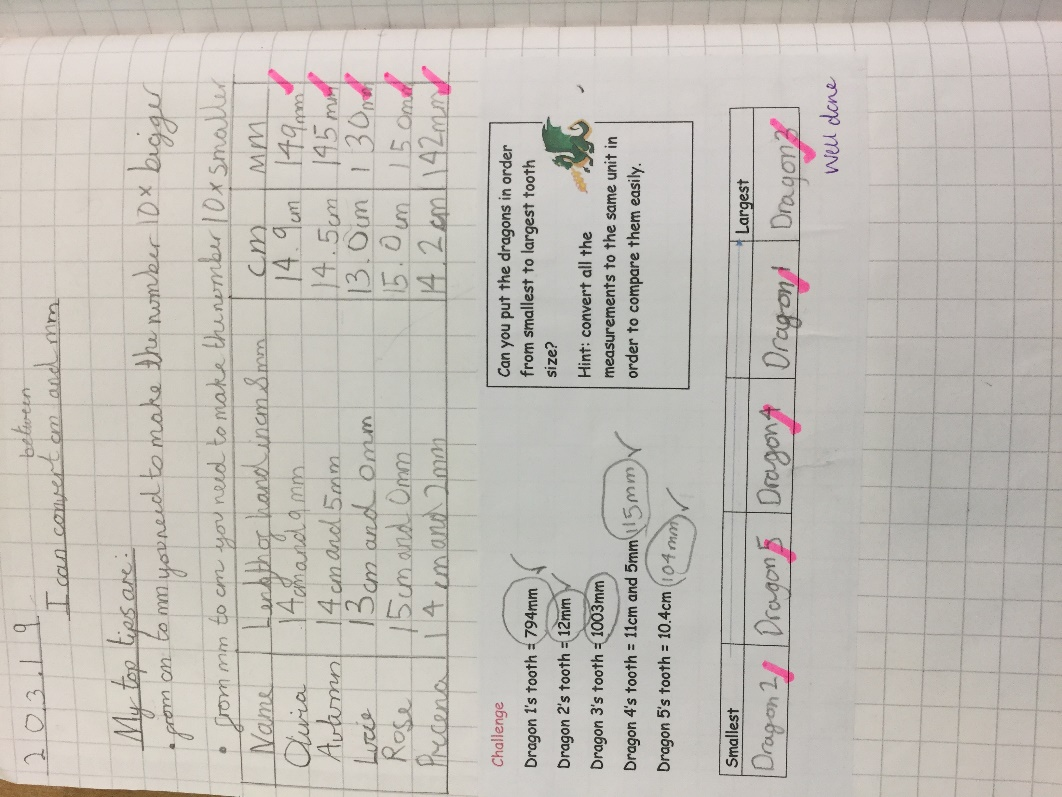 20.3.19
between
I can convert cm and mm
My top tips are:
• from cm to mm you need to make the number 10x bigger
• from mm to cm you need to make the number 10x smaller
Name Length of hand in cm & mm cm mm
Olivia 14cm and 9mm 14.9cm 149mm
Autumn 14cm and 5mm 14.5cm 145mm
Lucie 13cm and 0mm 13.0cm 130mm
Rose 15cm and 0mm 15.0cm 150mm
14cm and 2mm 14.2cm 142mm
Challenge
Dragon 1's tooth = 794mm
Dragon 2's tooth = 12mm
Dragon 3's tooth = 1003mm
Dragon 4's tooth = 11cm and 5mm 115mm
Dragon 5's tooth = 10.4cm 104mm
Can you put the dragons in order
from smallest to largest tooth
size?
Hint: convert all the
measurements to the same unit in
order to compare them easily.
Smallest Largest
Dragon 2 Dragon 5 Dragon 4 Dragon 1 Dragon 3
Well done